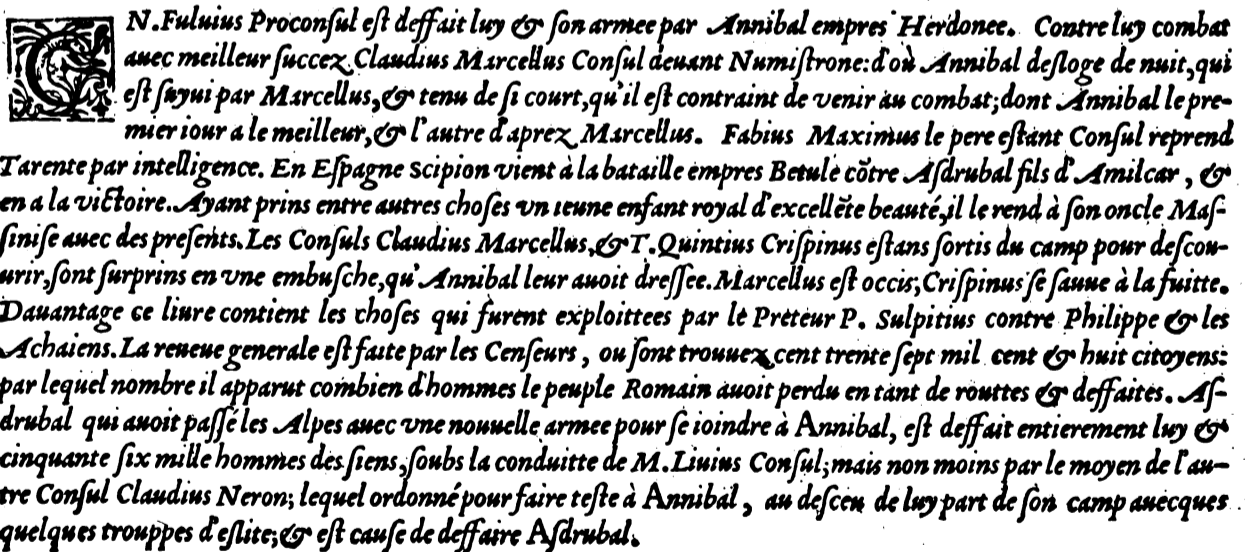 CN. Fuluius Proconſul eſt deffait luy & ſon armee par Annibal empres Herdonee. Contre luy combat
auec meilleur ſuccez Claudius Marcellus Conſul deuant Numiſtrone: d'où Annibal deſloge de nuit, qui
eſt ſuyui par Marcellus, & tenu de ſi court, qu'il eſt contraint de venir au combat; dont Annibal le pre-
mier iour a le meilleur, & l'autre d'aprez Marcellus. Fabius Maximus le pere eſtant Conſul reprend
Tarente par intelligence. En Eſpagne Scipion vient à la bataille empres Betule cõtre Aſdrubal fils d'Amilcar, &
en a la victoire. Ayant prins entre autres choſes vn ieune enfant royal d'excellẽte beauté, il le rend à ſon oncle Maſ-
ſiniſe auec des preſents. Les Conſuls Claudius Marcellus, & T. Quintius Criſpinus eſtans ſortis du camp pour deſcou-
urir, ſont ſurprins en vne embuſche, qu'Annibal leur auoit dreſſee. Marcellus eſt occis; Criſpinus ſe ſauue à la fuitte.
Dauantage ce liure contient les choſes qui furent exploittees par le Preteur P. Sulpitius contre Philippe & les
Achaiens. La reneue generale eſt faite par les Cenſeurs, ou ſont trouuez cent trente ſept mil cent & huit citoyens:
par lequel nombre il apparut combien d'hommes le peuple Romain auoit perdu en tant de routtes & deffaites. Aſ-
drubal qui auoit paſſé les Alpes auec vne nouuelle armee pour ſe ioindre à Annibal, eſt deffait entierement luy &
cinquante ſix mille hommes des ſiens, ſoubs la conduitte de M. Liuius Conſul; mais non moins par le moyen de l'au-
tre Conſul Claudius Neron; lequel ordonné pour faire teſte à Annibal, au deſceu de luy part de ſon camp auecques
quelques trouppes d'eſlite; & eſt cauſe de deffaire Aſdrubal.